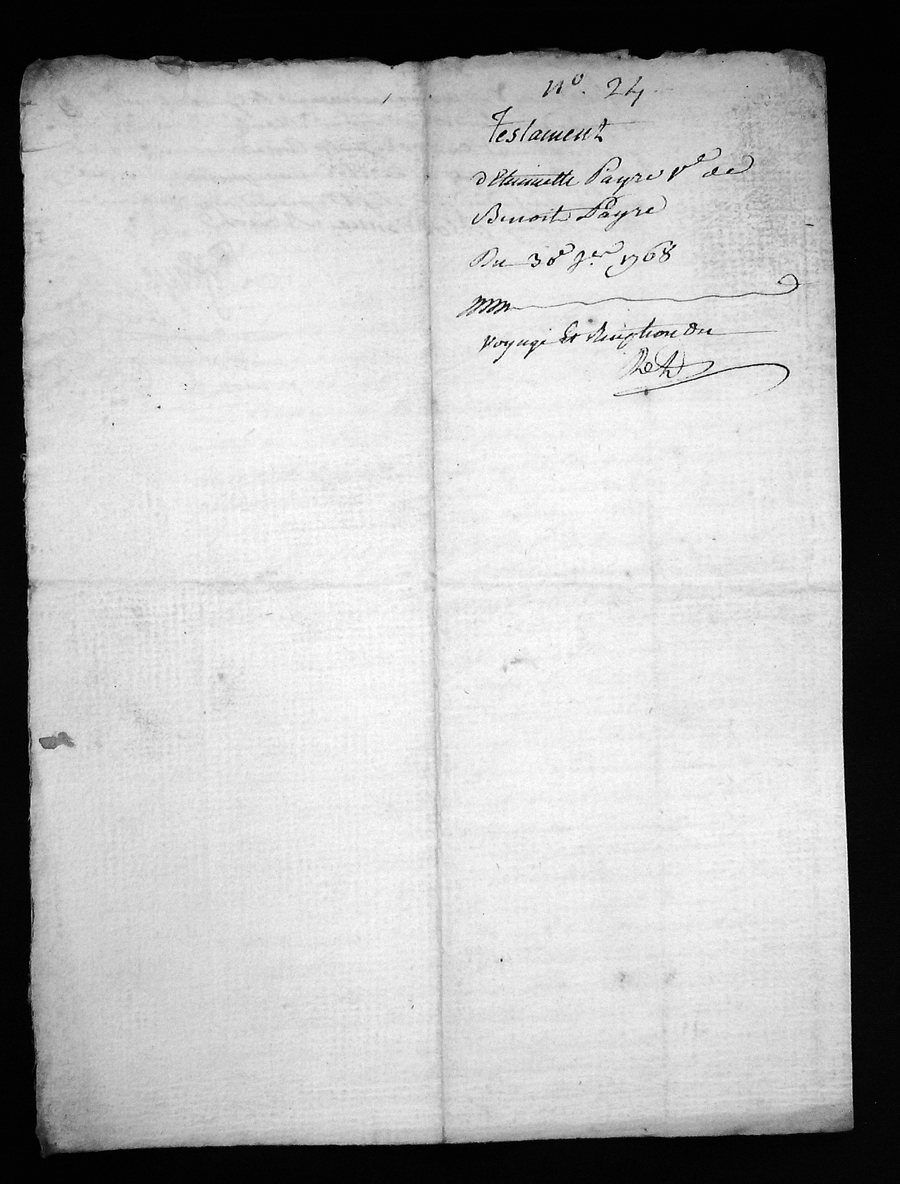 n°. 24
Testament
d'Etiennette Payre Ve de
Benoit Payre
Du 30e 1768
voyage Et du